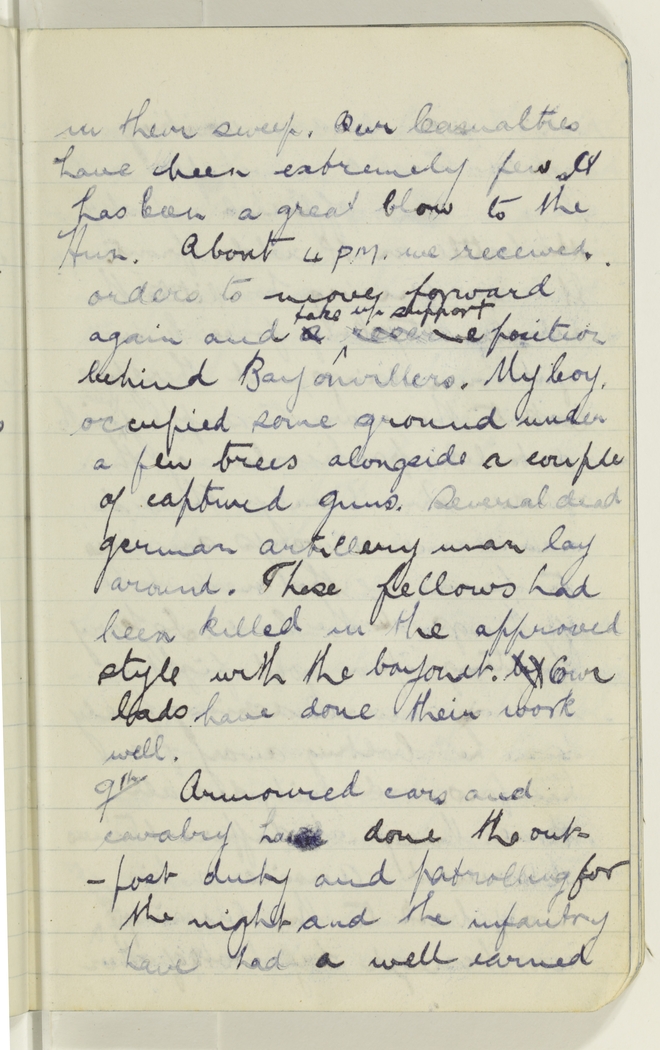 in their sweep. Our Casualties
have been extremely few. It
has been a great blow to the
Hun. About 4 P.M. we received
orders to move forward
take up support
again and a reserve position
behind Bayonvillers. My boy.
occupied some ground under
a few trees alongside a couple
of captured guns. Several dead
german artillery man lay
around. These fellows had
been killed in the approved
style with the bayonet. by Our
lads have done their work
well.
9th Armoured cars and
cavalry have done the out-
-post duty and patrolling for
the night and the infantry
have had a well earned